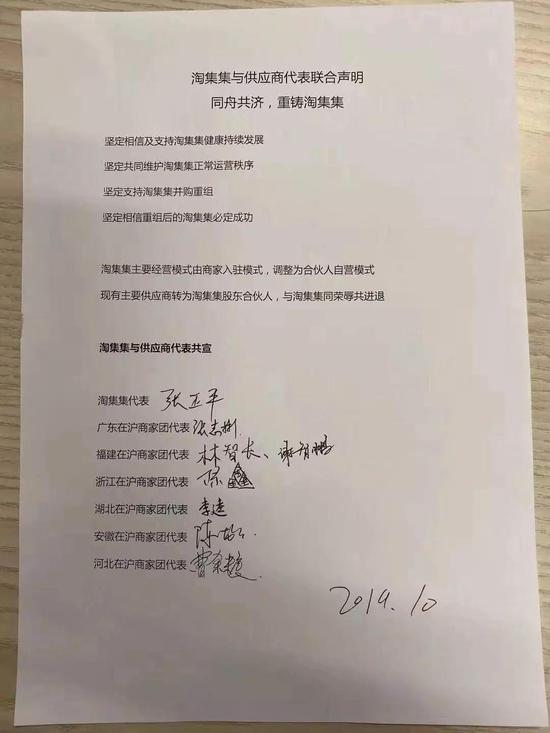 淘集集与供应商代表联合声明
同舟共济，重铸淘集集
坚定相信及支持淘集集健康持续发展
坚定共同维护淘集集正常运营秩序
坚定支持淘集集并购重组
坚定相信重组后的淘集集必定成功
淘集集主要经营模式由商家入驻模式，调整为合伙人自营模式
现有主要供应商转为淘集集股东合伙人，与淘集集同荣辱共进退
淘集集与供应商代表共宣
淘集集代表 张正平
广东在沪商家团代表
福建在沪商家团代表 林智长、
浙江在沪商家团代表
湖北在沪商家团代表 李逵
安徽在沪商家团代表
河北在沪商家团代表
2019.10